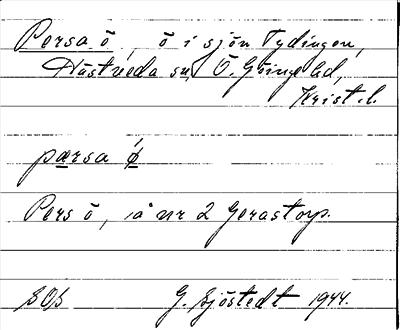 Persa ö, ö i sjön Tydingen,
Hästveda sn, Ö. Göinge hd,
Krist. l.
pærsa ǿ
Pers ö, i å nr 2 Gerastorp.
SOS
G. Sjöstedt 1944.